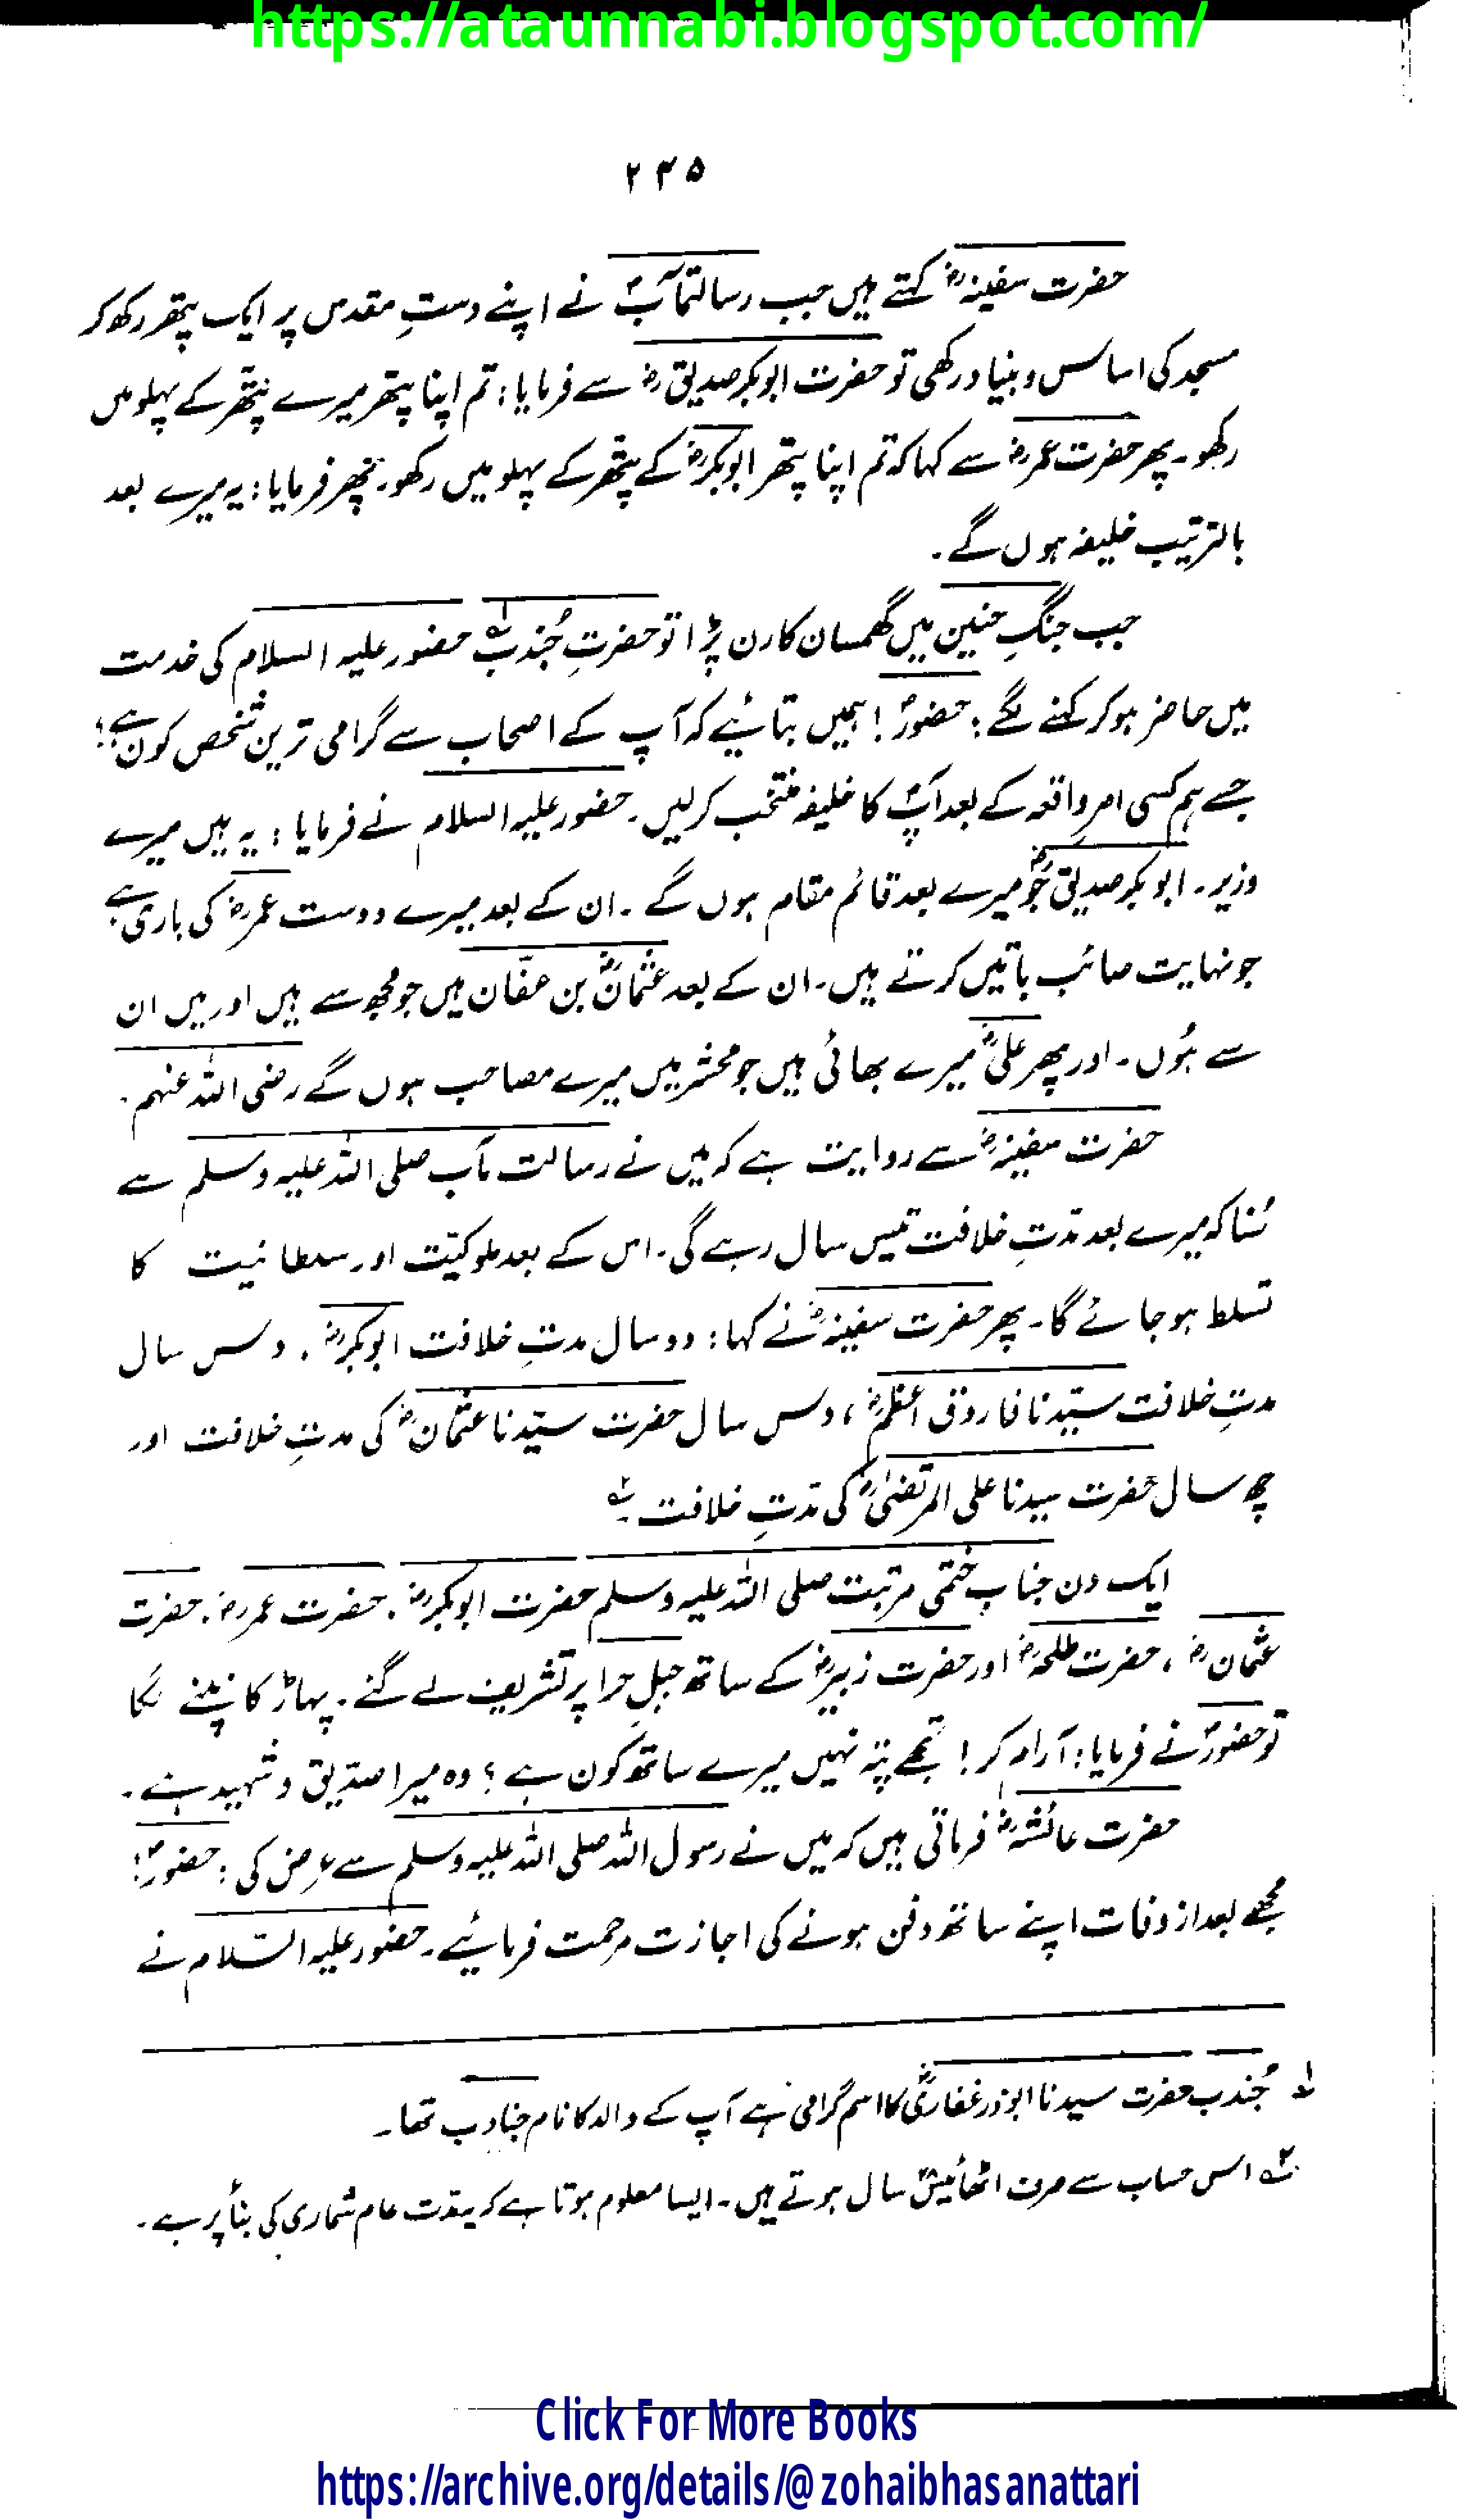 https://ataunnabi.blogspot.com/
۲۳۵
حضرت سفینہؓ کہتے ہیں جب رسالتمآبؐ نے اپنے دستِ مقدس پر ایک پتھر رکھ کر
مسجد کی اساس و بنیاد رکھی تو حضرت ابوبکر صدیقؓ سے فرمایا: تم اپنا پتھر میرے پتھر کے پہلو میں
رکھو۔ پھر حضرت عمرؓ سے کہا کہ تم اپنا پتھر ابوبکرؓ کے پتھر کے پہلو میں رکھو۔ پھر فرمایا: یہ میرے بعد
بالترتیب خلیفہ ہوں گے۔
جب جنگِ حنین میں گھمسان کا رن پڑا تو حضرتِ جُندبؓ۱ حضور علیہ السلام کی خدمت
میں حاضر ہو کر کہنے لگے: حضورؐ! ہمیں بتائیے کہ آپ کے اصحاب سے گرامی ترین شخص کون ہے؟
جسے ہم کسی امرِ واقعہ کے بعد آپؐ کا خلیفہ منتخب کر لیں۔ حضور علیہ السلام نے فرمایا: یہ ہیں میرے
وزیر۔ ابوبکر صدیقؓ جو میرے بعد قائم مقام ہوں گے۔ ان کے بعد میرے دوست عمرؓ کی باری ہے
جو نہایت صائب باتیں کرتے ہیں۔ ان کے بعد عثمانؓ بن عفّان ہیں جو مجھ سے ہیں اور میں ان
سے ہُوں۔ اور پھر علیؓ میرے بھائی ہیں جو محشر میں میرے مصاحب ہوں گے رضی اللہ عنہم۔
حضرت سفینہؓ سے روایت ہے کہ میں نے رسالت مآب صلی اللہ علیہ وسلم سے
سُنا کہ میرے بعد مدّتِ خلافت تیس سال رہے گی۔ اس کے بعد ملوکیّت اور سلطانیت کا
تسلط ہو جائے گا۔ پھر حضرت سفینہؓ نے کہا: دو سال مدتِ خلافت ابوبکرؓ، دس سال
مدتِ خلافت سیّدنا فاروق اعظمؓ، دس سال حضرت سیّدنا عثمانؓ کی مدتِ خلافت اور
چھ سال حضرت سیدنا علی المرتضیٰؓ کی مدّتِ خلافت۲
ایک دن جناب ختمی مرتبت صلی اللہ علیہ وسلم حضرت ابوبکرؓ، حضرت عمرؓ، حضرت
عثمانؓ، حضرت طلحہؓ اور حضرت زبیرؓ کے ساتھ جبلِ حرا پر تشریف لے گئے۔ پہاڑ کانپنے لگا
تو حضورؐ نے فرمایا: آرام کر! تجھے پتہ نہیں میرے ساتھ کون ہے؟ وہ میرا صدّیق و شہید ہے۔
حضرت عائشہؓ فرماتی ہیں کہ میں نے رسول اللہ صلی اللہ علیہ وسلم سے عرض کی: حضورؐ!
مجھے بعد از وفات اپنے ساتھ دفن ہونے کی اجازت مرحمت فرمائیے۔ حضور علیہ السّلام نے
۱ جُندب حضرت سیدنا ابوذر غفاریؓ کا اسم گرامی ہے آپ کے والد کا نام جنادب تھا۔
۲ اس حساب سے صرف اٹھائیس سال ہوتے ہیں۔ ایسا معلوم ہوتا ہے کہ یہ مدّت عام شماری کی بنا پر ہے۔
Click For More Books
https://archive.org/details/@zohaibhasanattari